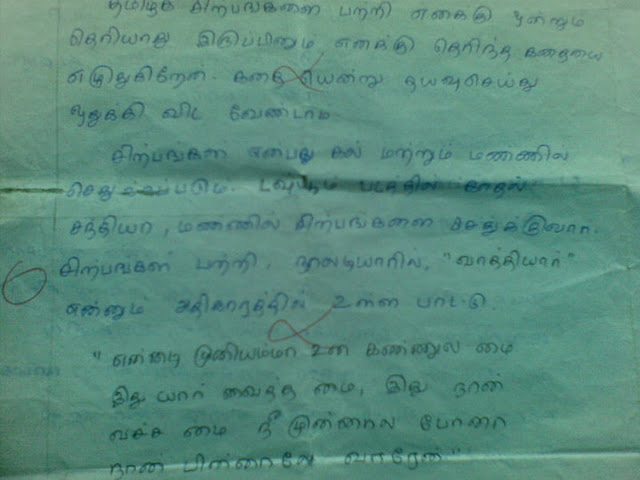 தமிழக சிற்பங்களை பற்றி எனக்கு ஒன்றும்
தெரியாது இருப்பினும் எனக்கு தெரிந்த கதையை
எழுதுகிறேன். கதை யென்று தயவுசெய்து
ஒதுக்கி விட வேண்டாம்
சிற்பங்கள் என்பது கல் மற்றும் மண்ணில்
படத்தில் காதல்
சந்தியா, மண்ணில் சிற்பங்களை செதுக்குவார்.
சிற்பங்கள் பற்றி, நாலடியாரில், "வாத்தியார்"
என்னும் அதிகாரத்தில் உள்ள பாட்டு.
"என்னடி முனியம்மா உன் கண்ணுல மை
இது யார் வைத்த மை, இது நான்
வச்ச மை நீ முன்னால போனா
நான் பின்னாலே வாரேன்"